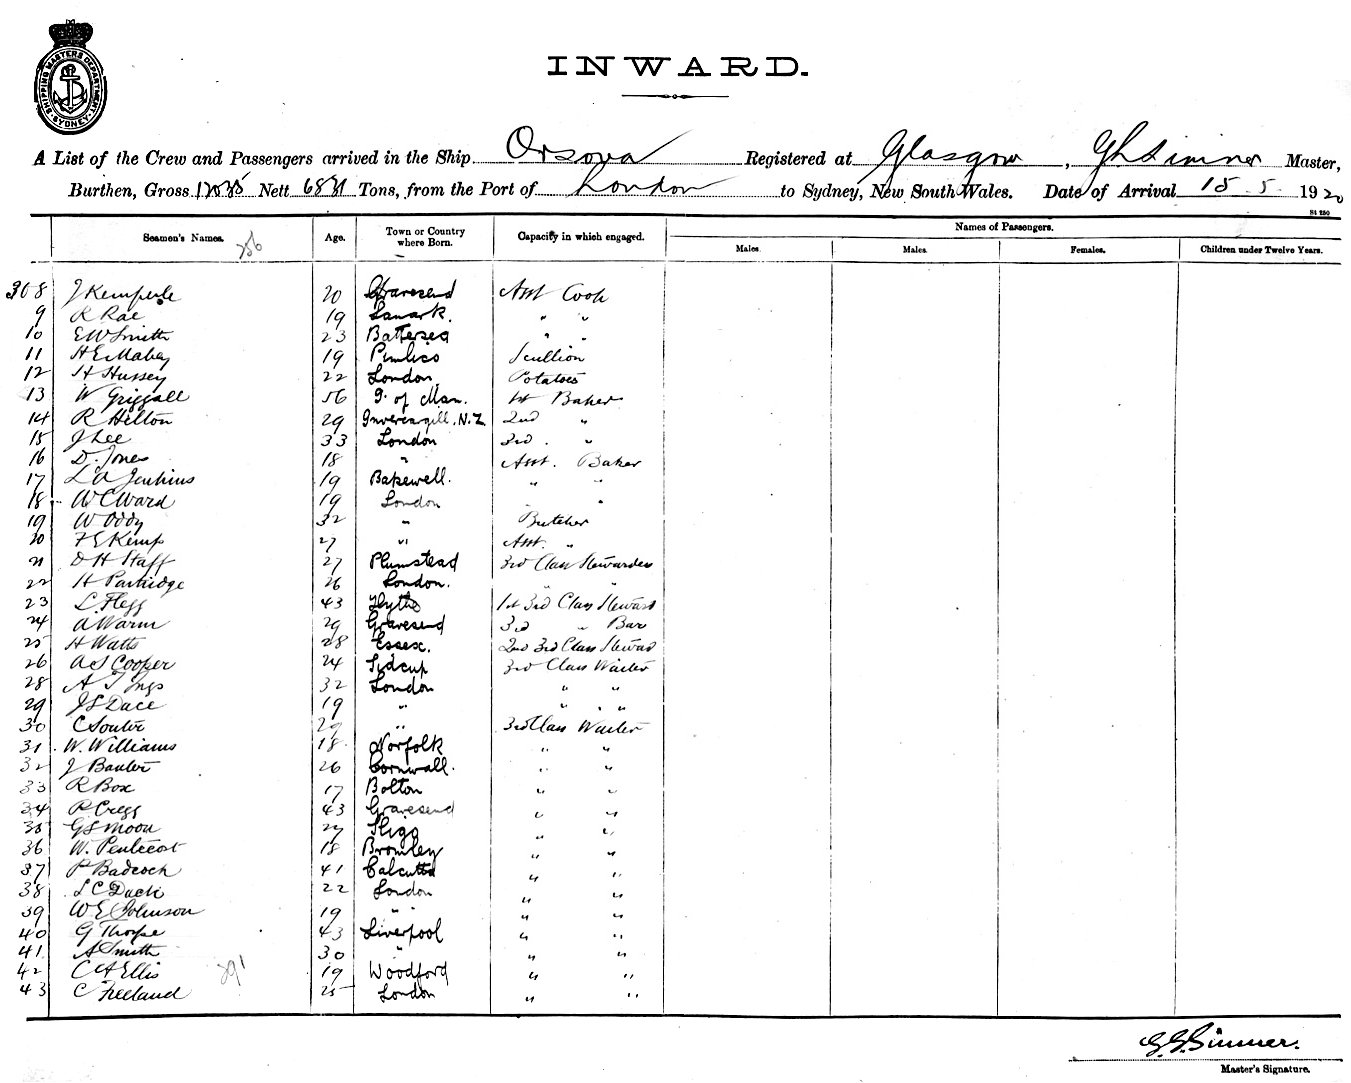 SHIPPING MASTERS DEPARTMENT SYDNEY
INWARD.
A List of the Crew and Passengers arrived in the Ship Orsova Registered at Glasgow, Master,
Burthen, Gross 12036 Nett 6831 Tons, from the Port of London to Sydney, New South Wales. Date of Arrival 15 5 1920
St 230
Seamen's Names. Age. Town or Country where Born. Capacity in which engaged. Names of Passengers.
Males. Males. Females. Children under Twelve Years.
308 J Kemperle 20 Gravesend Asst Cook
9 R Rae 19 Lanark. " "
10 E W Smith 23 Battersea " "
11 H E Mabey 19 Pimlico Scullion
12 H Hussey 22 London Potatoes
13 W Griggall 56 I. of Man. 1st Baker
14 R Hilton 29 Invercargill. N.Z 2nd "
15 J Lee 33 London 3rd. "
16 D. Jones 18 " Asst. Baker
17 L A Jenkins 19 Bakewell. " "
18 W C Ward 19 London "
19 W Oddy 32 " Butcher
20 F E Kemp 27 " Asst. "
21 D H Staff 27 Plumstead 3rd Class Stewardess
22 H Partridge 26 London. " "
23 L Flegg 43 Hythe 1st 3rd Class Steward
24 A Warm 29 Gravesend 3rd " Bar
25 H Watts 28 Essex. 2nd 3rd Class Steward
26 A S Cooper 24 Sidcup 3rd Class Waiter
28 A T Ings 32 London " "
29 J S Dace 19 " " "
30 C Souter 29 " 3rd Class Waiter
31 W. Williams 18 Norfolk " "
32 J Baxter 26 Cornwall. " "
33 R Box 17 Bolton " "
34 P Cregg 43 Gravesend " "
35 G S Moon 27 Sligo " "
36 W. Pentecost 18 Bromley " "
37 P Badcock 41 Calcutta " "
38 22 London " "
39 W E Johnson 19 " " "
40 G Thorpe 43 Liverpool " "
41 A Smith 30 " " "
42 C A Ellis 19 Woodford " "
43 C Freeland 25 London " "
Master's Signature.